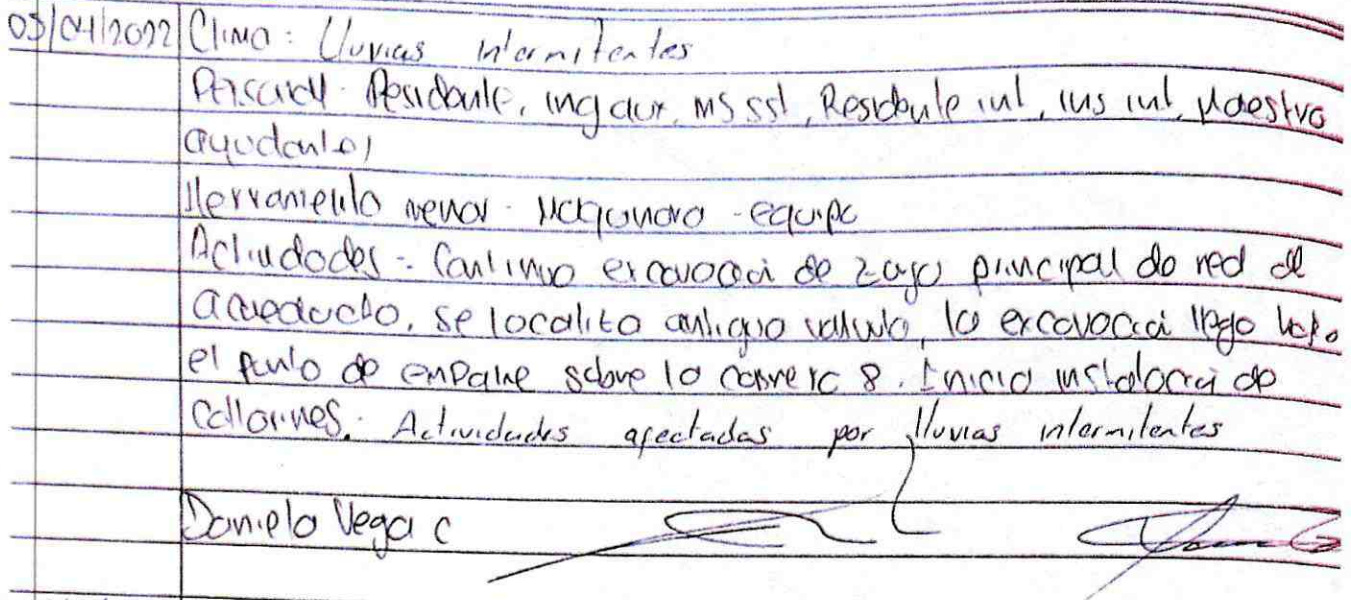 03/04/2022 Clima: Lluvias intermitentes
Personal: Residente, ing aux, ms sst, Residente int, ins int, Maestro
ayudantes
Herramienta menor - Maquinaria - equipo
Actividades - Continuo excavacion de zanja principal de red de
acueducto, se localizo antigua valvula, la excavacion llego
el punto de empalme sobre la carrera 8. Inicio instalacion de
Collarines. Actividades afectadas por lluvias intermitentes
Daniela Vega C